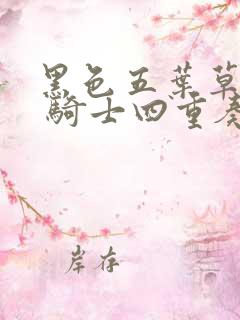 黑色五葉草
騎士四重奏
岸存